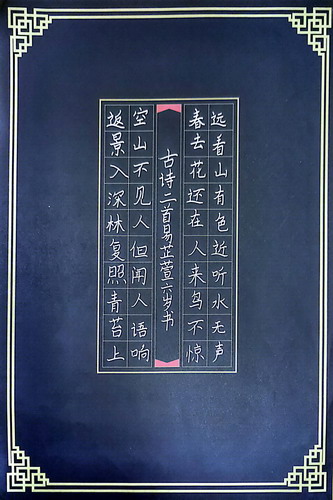 远看山有色近听水无声
春去花还在人来鸟不惊
古诗二首易芷萱六岁书
空山不见人但闻人语响
返景入深林复照青苔上